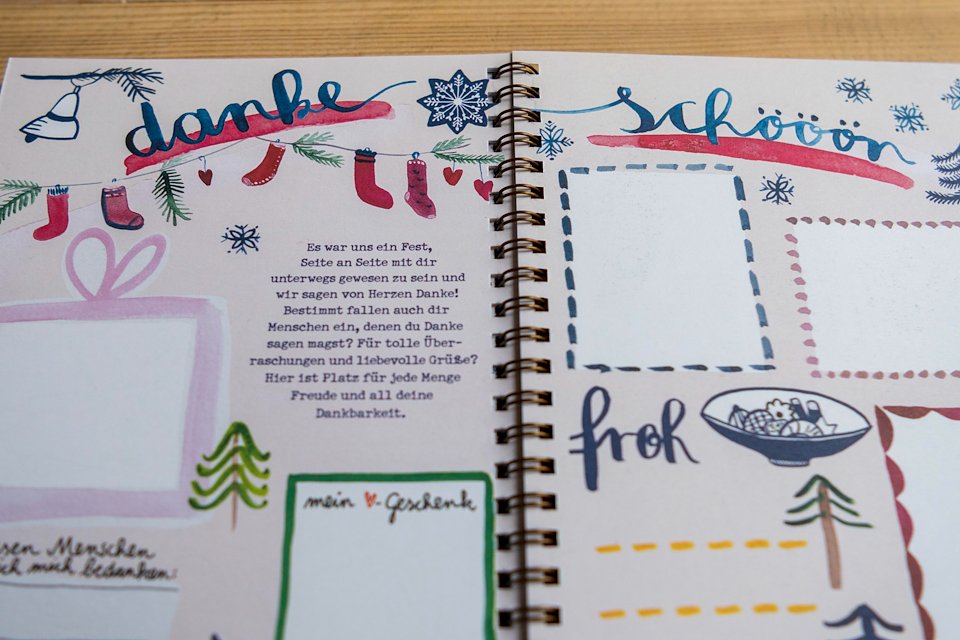 danke
schöööön
Es war uns ein Fest,
Seite an Seite mit dir
unterwegs gewesen zu sein und
wir sagen von Herzen Danke!
Bestimmt fallen auch dir
Menschen ein, denen du Danke
sagen magst? Für tolle Über-
raschungen und liebevolle Grüße?
Hier ist Platz für jede Menge
Freude und all deine
Dankbarkeit.
froh
mein -Geschenk
Menschen
mich bedanken: